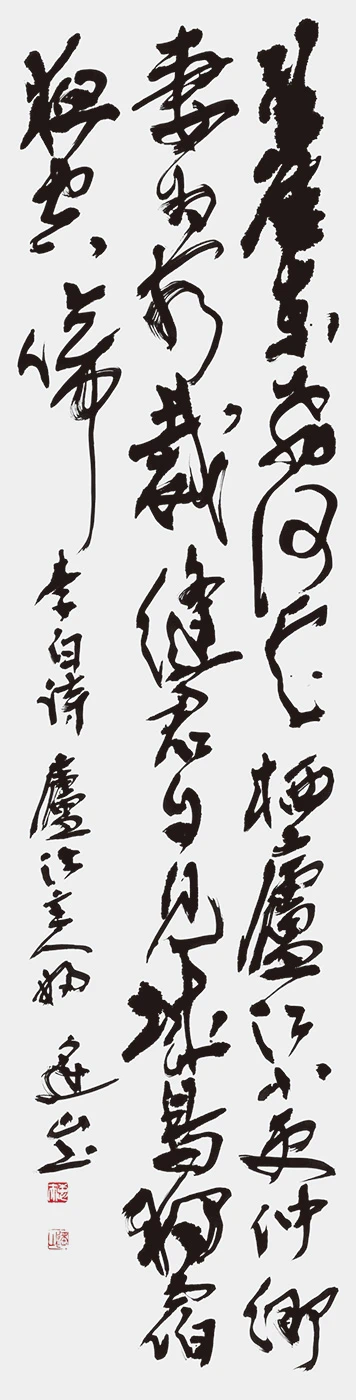 孔雀東飛何處栖廬江小吏仲卿
妻為客裁縫君自見城烏獨宿
夜空啼 李白詩 廬江主人婦